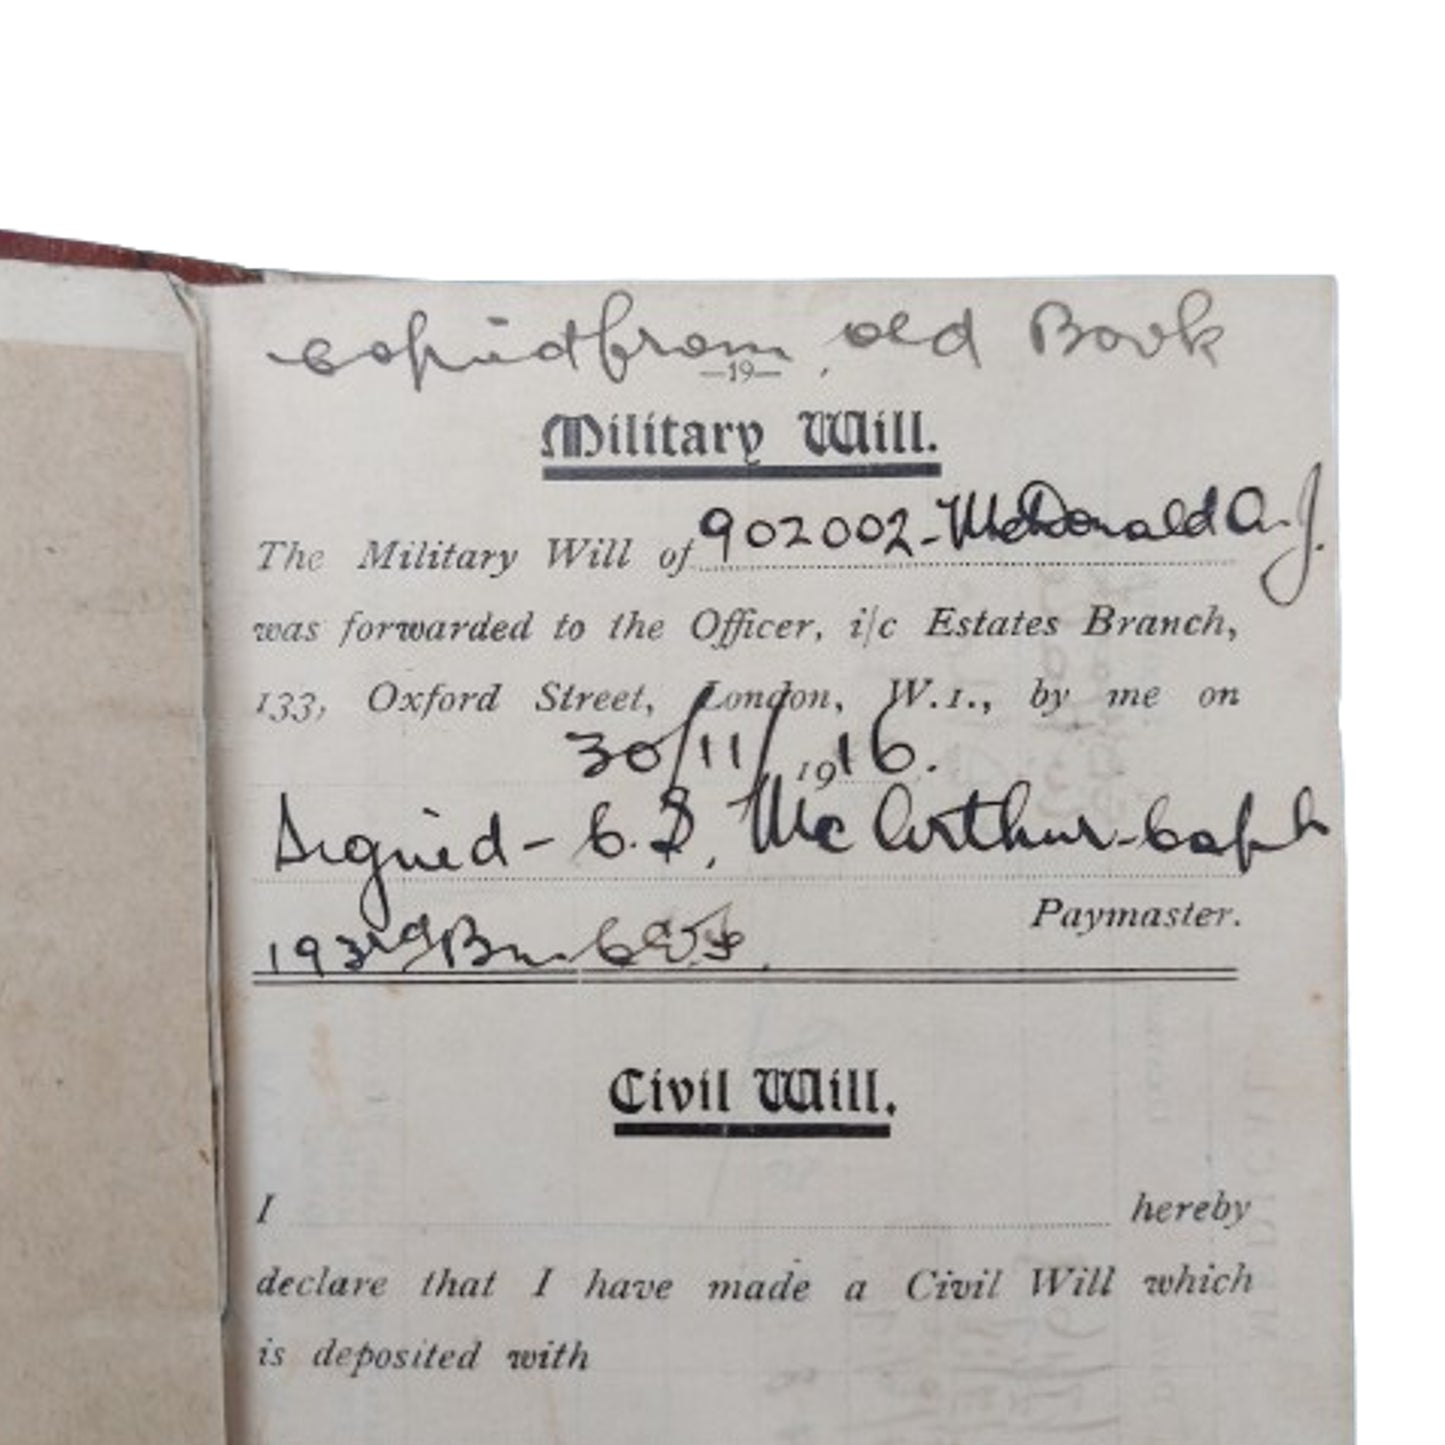 copied from, old Book
—19—
Military Will.
The Military Will of 902002-McDonald A.J.
was forwarded to the Officer, i/c Estates Branch,
133, Oxford Street, London, W.1., by me on
30/11/1916.
Signed - C.S. McArthur - Capt
Paymaster.
193rd Bn. C.E.F.
Civil Will.
I hereby
declare that I have made a Civil Will which
is deposited with